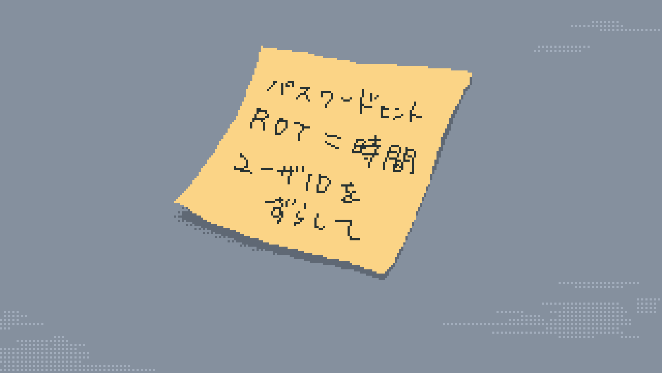 パスワードヒント
ROT = 時間
ユーザIDを
ずらして